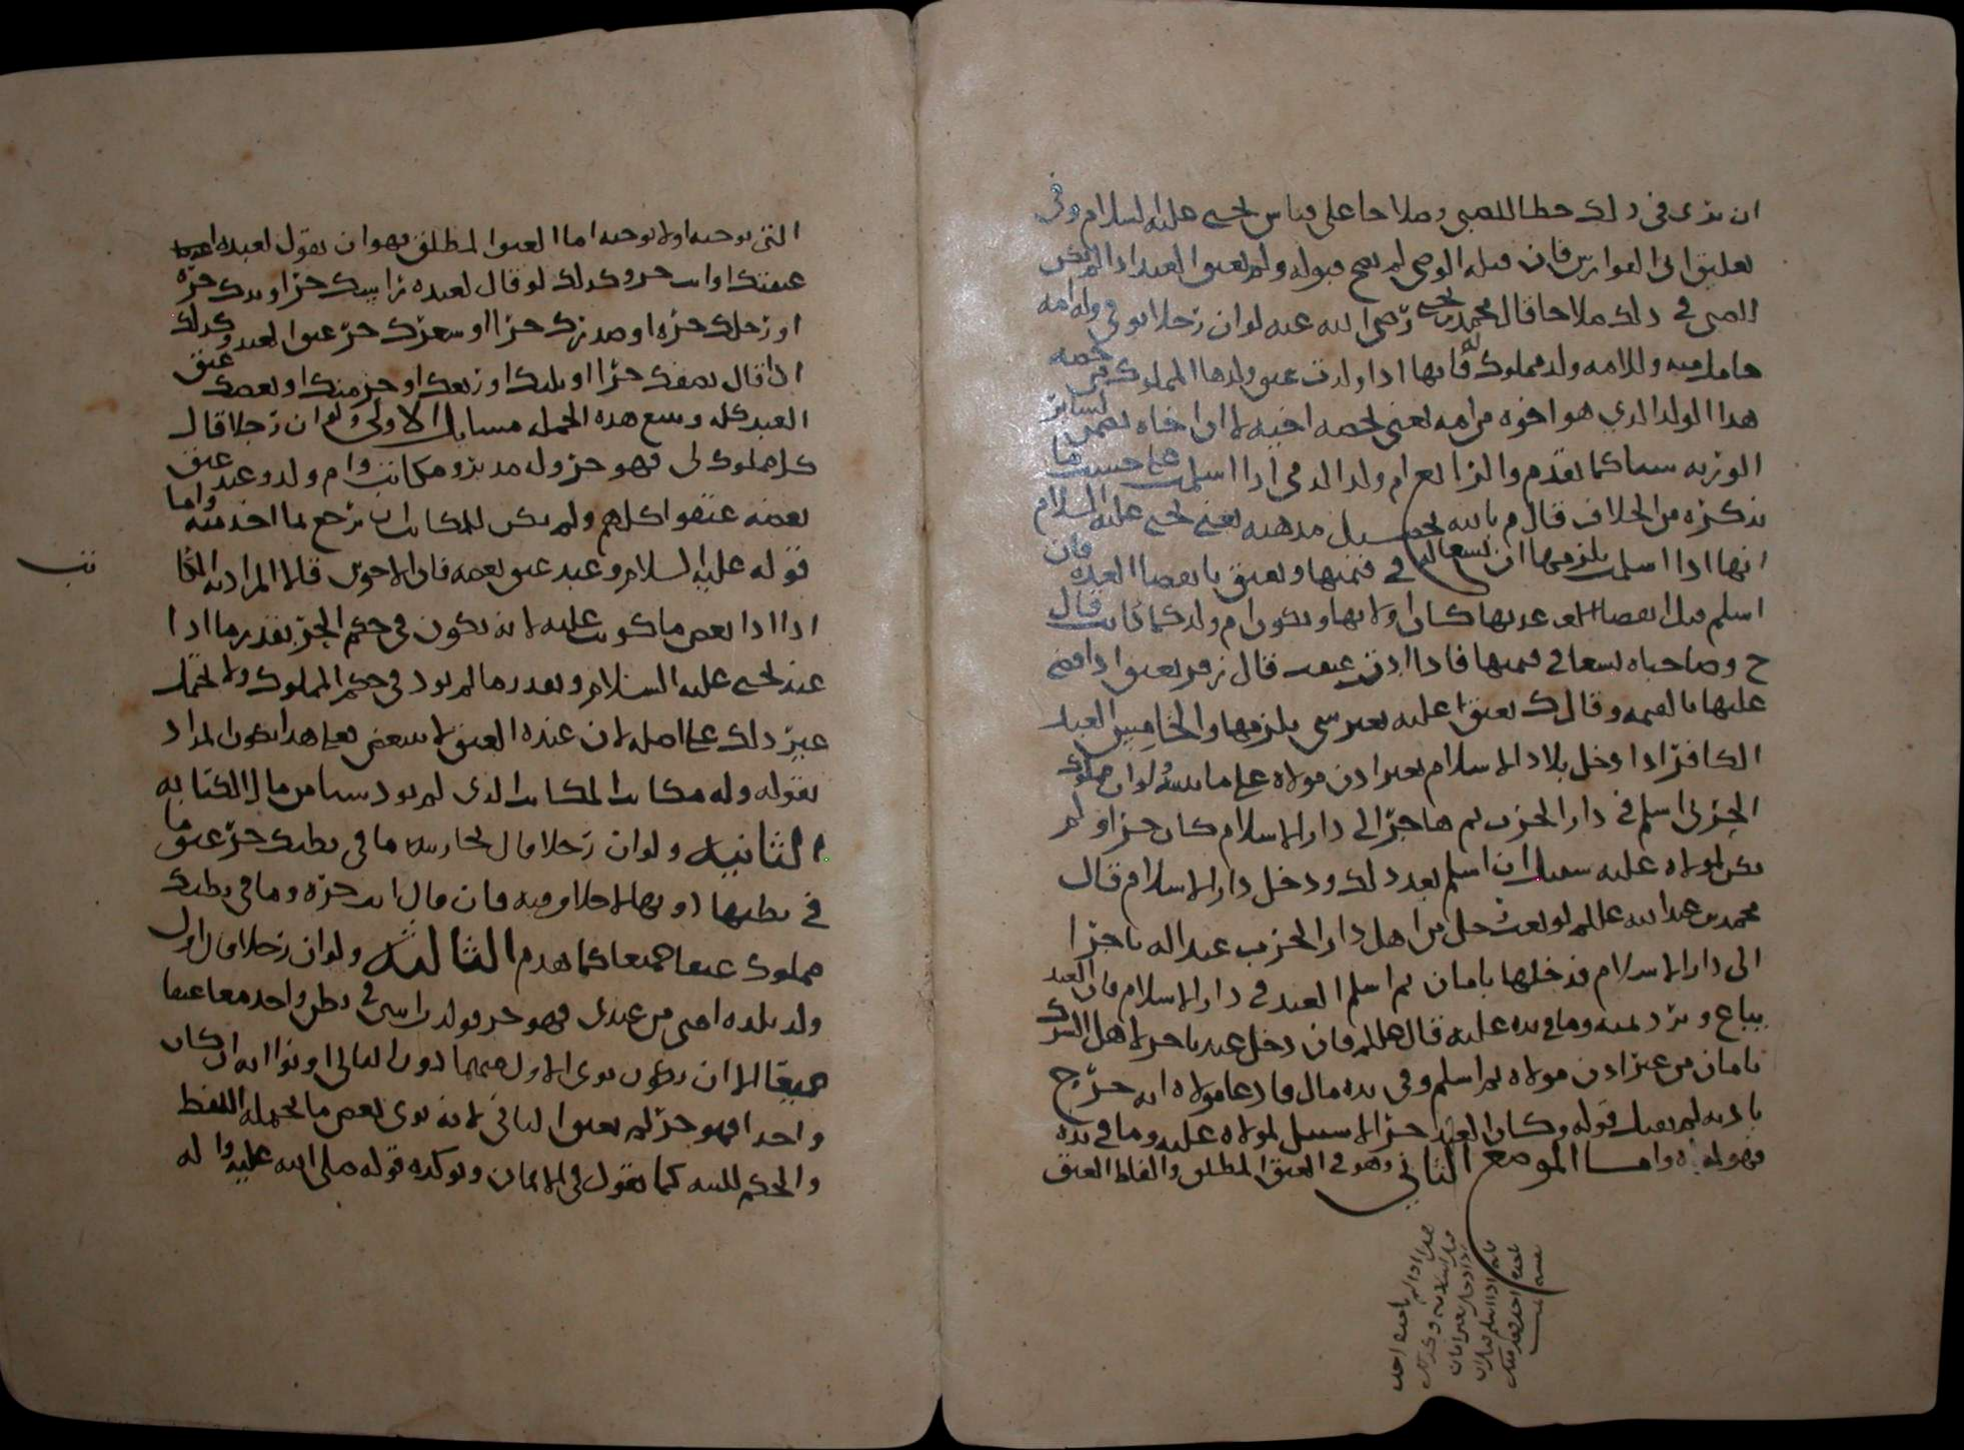 ان يرى في ذلك حظا للصبي وصلاحا على قياس يحيى عليه السلام وفي
تعليق ابي الفوارس فان قبله الوصي لم يصح قبوله ولم يعتق العبد اذا لم يكن
للصبي في ذلك صلاحا قال محمد بن يحيى رضي الله عنه لو ان رجلا توفي وله امه
حامل منه وللامه ولد مملوك له فانها اذا ولدت عتق ولدها المملوك في حصه
هذا الولد الذي هو اخوه من امه يعني بحصه اخيه لا ان اخاه يضمن لسائر
الورثه شيئا كما تقدم والرابع ام ولد الذمي اذا اسلمت على حسب ما
نذكره من الخلاف قال م بالله تحصيل مذهبه يعني يحيى عليه السلام
انها اذا اسلمت يلزمها ان تسعى له في قيمتها وتعتق بانقضاء العده فان
اسلم قبل انقضاء عدتها كان اولا بها وتكون ام ولد كما كانت قال
ح وصاحباه تسعا في قيمتها فاذا ادت عتقت قال زفر تعتق اذا قضي
عليها بالقيمه وقال ك تعتق عليه بغير شي يلزمها والخامس العبد
الكافر اذا دخل بلاد الاسلام بغير اذن مولاه على ما نبينه ولو ان مملوك
الحربي اسلم في دار الحرب ثم هاجر الى دار الاسلام كان حرا ولم
يكن لمولاه عليه سبيل ان اسلم بعد ذلك ودخل دار الاسلام قال
محمد بن عبد الله عللم لو بعث رجل من اهل دار الحرب عبدا له تاجرا
الى دار الاسلام فدخلها بامان ثم اسلم العبد في دار الاسلام فان العبد
يباع ويرد ثمنه وما في يده عليه قال عللم فان دخل عبد تاجر لاهل الشرك
بامان من غير اذن مولاه ثم اسلم وفي يده مال فادعا مولاه انه خرج
باذنه لم يقبل قوله وكان العبد حرا لا سبيل لمولاه عليه وما في يده
فهو له واما الموضع الثاني وهو في العتق المطلق والفاظ العتق
التي توجبه او لا توجبه اما العتق المطلق فهو ان يقول لعبده
عتقتك او انت حر وكذلك لو قال لعبده راسك حر او يدك حره
او رجلك حره او صدرك حر او شعرك حر عتق العبد وكذلك
ان قال نصفك حر او ثلثك او ربعك او جزء منك او بعضك عتق
العبد كله وتتبع هذه الجمله مسايل الاولى ولو ان رجلا قال
كل مملوك لي فهو حر وله مدبر ومكاتب وام ولد وعبد عتق
بعضه عتقوا كلهم ولم يكن للمكاتب ان يرجع بما اخذ منه واما
قوله عليه السلام وعبد عتق بعضه فان الاخوين قالا المراد به المكاتب
اذا ادا بعض ما كوتب عليه لانه يكون في حكم الحر بقدر ما ادا
عند يحيى عليه السلام وبقدر ما لم يود في حكم المملوك ولا يحتمل
غير ذلك على اصله لان عنده العتق لا يتبعض فعلى هذا يكون المراد
بقوله وله مكاتب المكاتب الذي لم يود شيئا من مال الكتابه
الثانيه ولو ان رجلا قال لجاريته ما في بطنك حر عتق ما
في بطنها دونها لا خلاف فيه فان قال انت حره وما في بطنك
مملوك عتقا جميعا كما تقدم الثالثه ولو ان رجلا قال اول
ولد تلده امتي من عبدي فهو حر فولدت اثنين في بطن واحد معا عتقا
جميعا الا ان يكون نوى الاول منهما دون الثاني او نوا انه ان كان
واحدا فهو حر لم يعتق الثاني لانه نوى بعض ما يحتمله اللفظ
والحكم للنيه كما نقول في الايمان ويوكده قوله صلى الله عليه واله